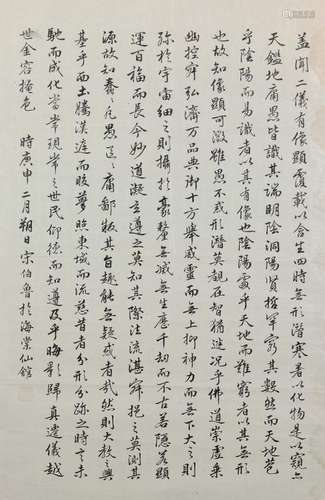 盖聞二儀有像顯覆載以含生四時無形潛寒暑以化物是以窺
天鑑地庸愚皆識其端明陰洞陽賢哲罕窮其數然而天地苞
乎陰陽而易識者以其有像也陰陽處乎天地而難窮者以其無形
也故知像顯可徵雖愚不惑形潛莫覩在智猶迷况乎佛道崇虛乘
幽控寂弘濟萬品典御十方舉威靈而無上抑神力而無下大之則
弥於宇宙細之則攝於豪釐無滅無生歷千劫而不古若隱若顯
運百福而長今妙道凝玄遵之莫知其際法流湛寂挹之莫測其
源故知蠢々凡愚區々庸鄙投其旨趣能無疑或者哉然則大教之興
基乎西土騰漢庭而皎夢照東域而流慈昔者分形分跡之時言未
馳而成化當常現常之世民仰德而知遵及乎晦影歸真遷儀越
世金容掩色 時庚申二月朔日宋伯魯於海棠仙館